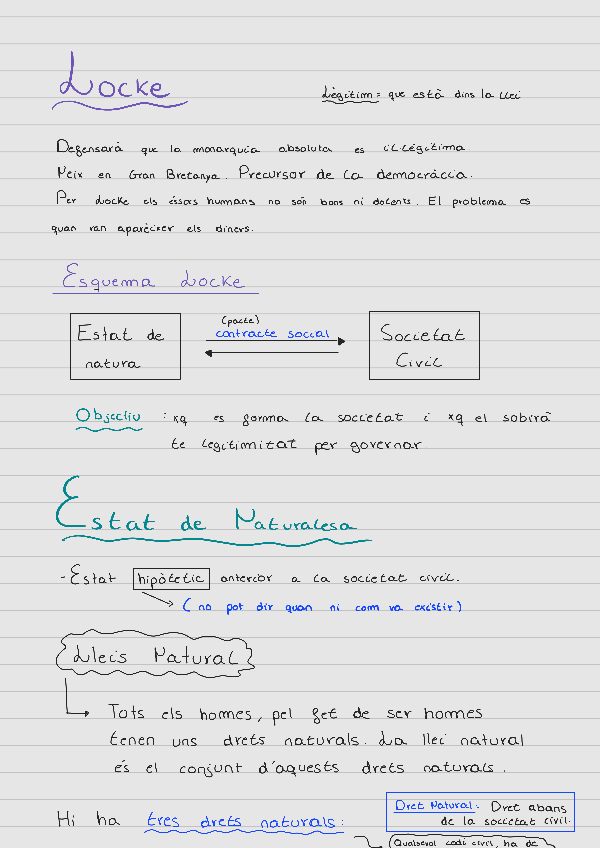 Locke
Legitim = que està dins la llei
Defensarà que la monarquia absoluta es il·legítima
Neix en Gran Bretanya. Precursor de la democràcia.
Per Locke els éssers humans no són bons ni dolents. El problema es
quan van aparèixer els diners.
Esquema Locke
Estat de
natura
(pacte)
contracte social
Societat
Civil
Objectiu : xq es forma la societat i xq el sobirà
te legitimitat per governar
Estat de Naturalesa
- Estat hipòtetic anterior a la societat civil.
( no pot dir quan ni com va existir)
Lleis Natural
Tots els homes, pel fet de ser homes
tenen uns drets naturals. La llei natural
és el conjunt d'aquests drets naturals.
Hi ha tres drets naturals:
Dret Natural: Dret abans
de la societat civil.
Qualsevol codi civil, ha de